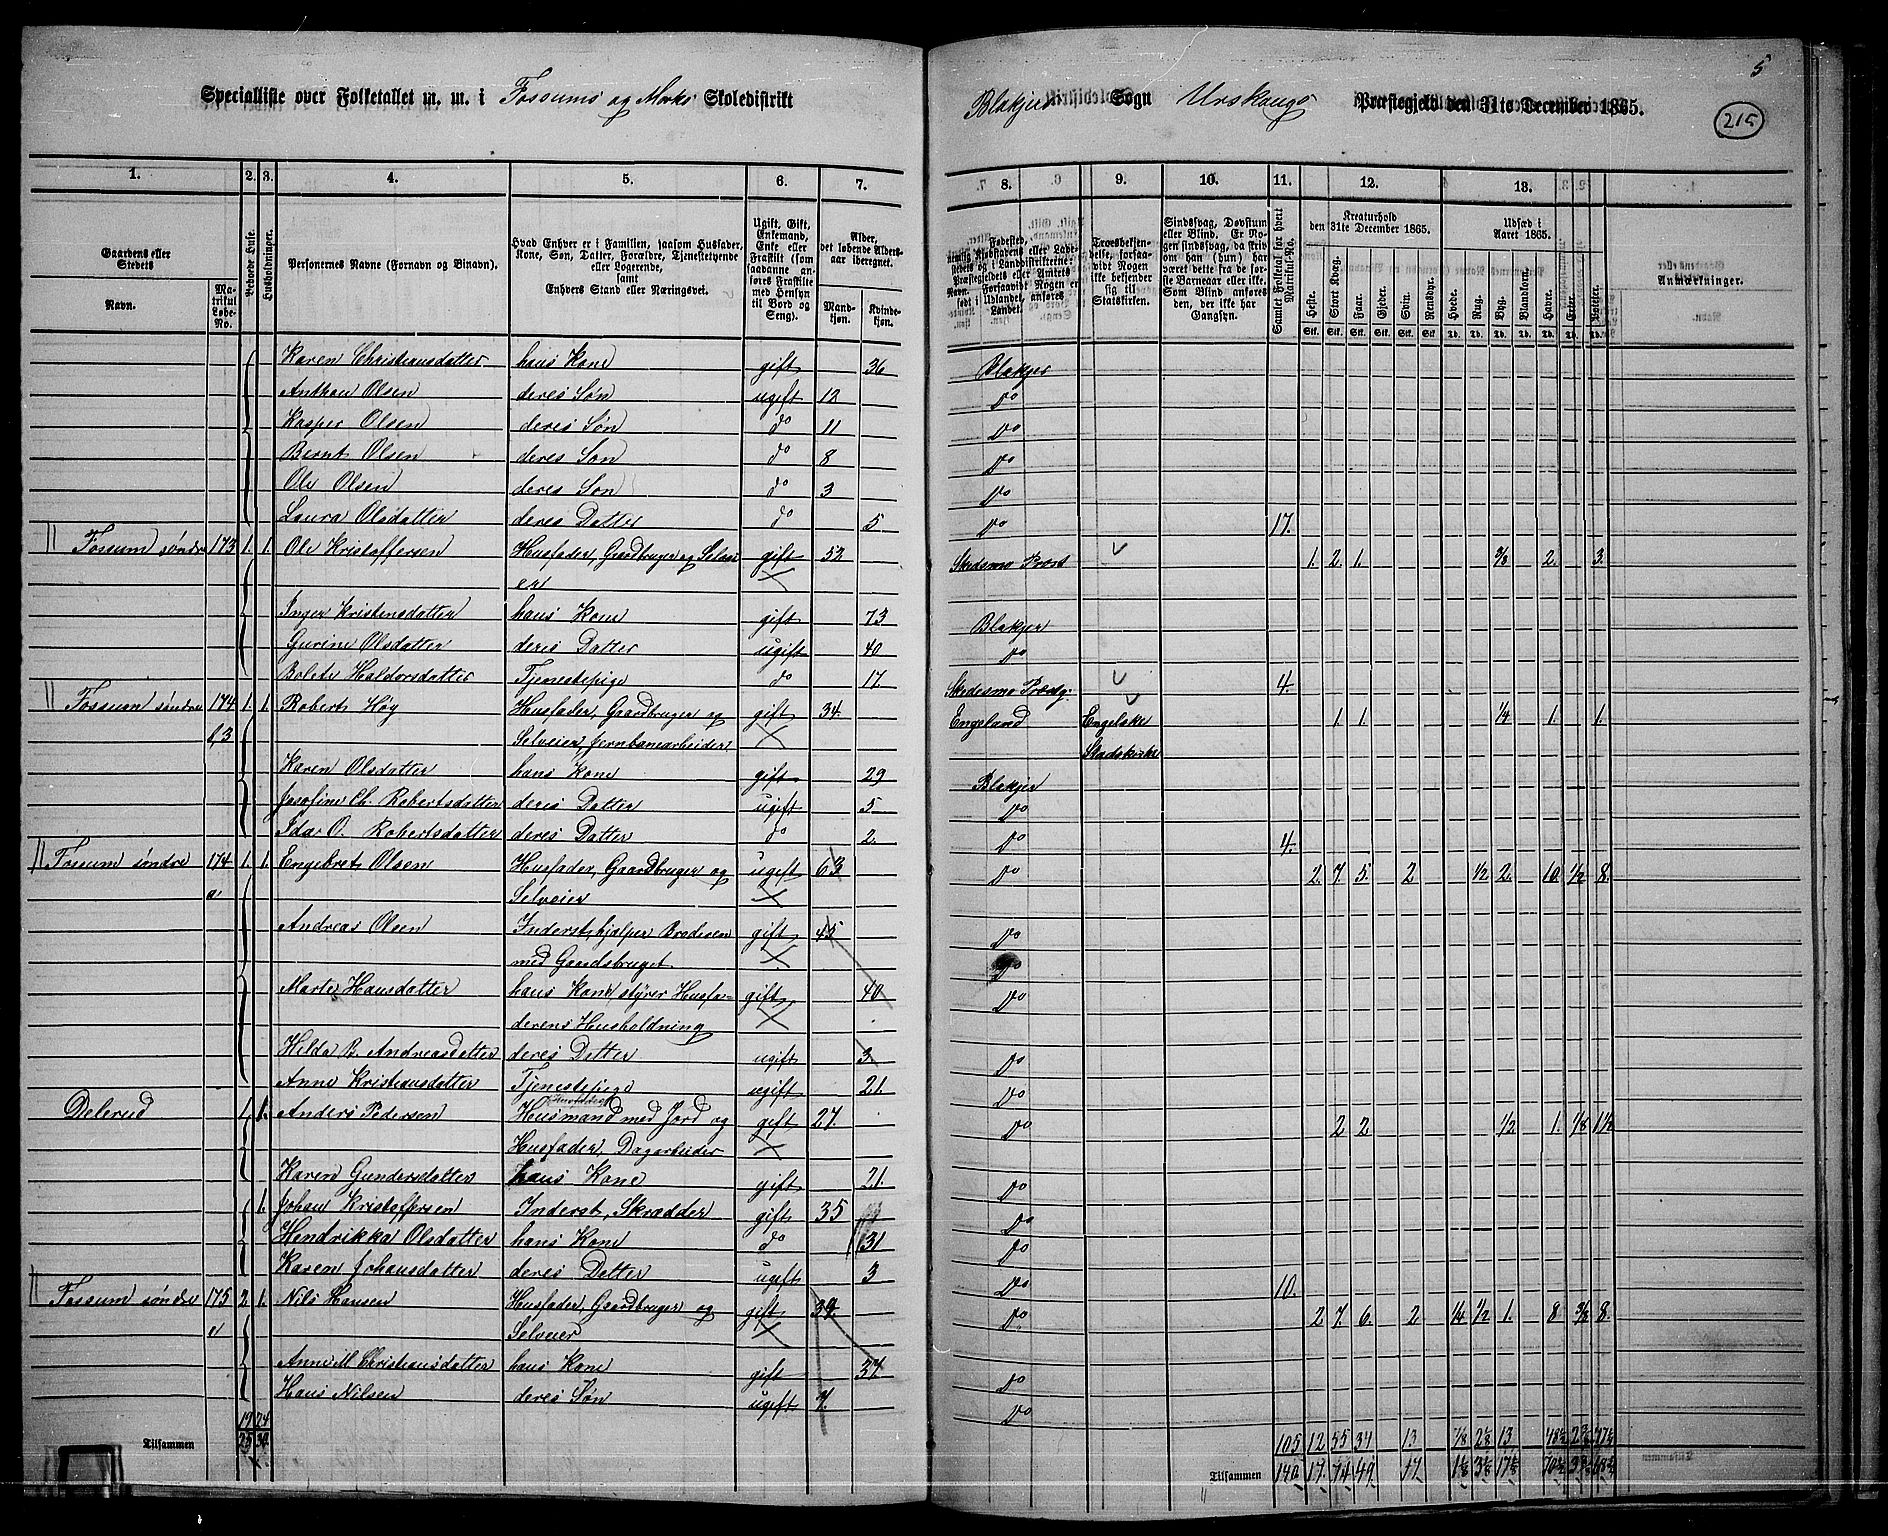 5
Specialliste over Folketallet m. m. i Fossums og Morks Skoledistrikt
Blakjer Sogn Urskougs Præstegjeld den 31te December 1865.
215
1. 2. 3. 4. 5. 6. 7. 8. 9. 10. 11. 12. 13.
Gaardens eller Stedets
Navn.
Matrikul Løbe-No.
Beboede Huse.
Husholdninger.
Personernes Navne (Fornavn og Binavn).
Hvad Enhver er i Familien, saasom Husfader, Kone, Søn, Datter, Forældre, Tjenestetyende eller Logerende, samt Enhvers Stand eller Næringsvei.
Ugift, Gift, Enkemand, Enke eller Fraskilt (som saadanne anføres Fraskilte med Hensyn til Bord og Seng).
Alder, det løbende Aldersaar iberegnet.
Mandkjøn. Kvindekjøn.
Troesbekjendelse, forsaavidt Nogen ikke bekjender sig til Statskirken.
Sindssvag, Døvstum eller Blind. Er Nogen sindssvag, da skrives om han (hun) har været dette fra de første Barneaar eller ei. Som Blind anføres den, der ikke har Gangsyn.
Samlet Folketal for hvert Matrikul-No.
Kreaturhold den 31te December 1865.
Heste. Stort Kvæg. Faar. Gjeder. Svin. Rensdyr.
Udsæd i Aaret 1865.
Hvede. Rug. Byg. Blandkorn. Havre. Erter. Poteter.
Anmærkninger.
Karen Christiansdatter hans Kone gift 36 Blakjer
Anthon Olsen deres Søn ugift 12 Do
Kasper Olsen deres Søn do 11 Do
Bernt Olsen deres Søn do 8 Do
Ole Olsen deres Søn do 3 Do
Laura Olsdatter deres Datter do 5 Do 17.
Fossum søndre 173 1. 1. Ole Kristoffersen Husfader, Gaardbruger og Selvei gift 52 Skedsmo Præst 1. 2. 1. 3/8 2. 3.
er
Inger Kristensdatter hans Kone gift 73 Blakjer
Gurine Olsdatter deres Datter ugift 40 Do
Bolete Haldorsdatter Tjenestepige do 17 Skedesmo Præstg: 4.
Fossum søndre 174 1. 1. Robert Høy Husfader, Gaardbruger og gift 34. Engeland Engelske 1. 1. 1/4 1. 1.
b,3 Selveier, Jernbanearbeider Stadskirke
Karen Olsdatter hans Kone gift 29 Blakjer
Josefine Ch. Robertsdatter deres Datter ugift 5 Do
Ida O. Robertsdatter deres Datter do 2. Do 4.
Fossum søndre 174 1. 1. Engebret Olsen Husfader, Gaardbruger og ugift 63 Do 2. 7. 5. 2 1/2 2. 10. 1/2 8.
a Selveier
Andreas Olsen Inderst, hjælper Broderen gift 45 Do
med Gaardsbruget. Do
Marte Hansdatter hans Kone, styrer Husfa- gift 40 Do
derens Husholdning
Hilda B. Andreasdatter deres Datter ugift 3 Do
Anne Kristiansdatter Tjenestepige ugift 21. Do
Delerud 1. 1. Anders Pedersen Husmand med Jord og gift 27. Do 2 2 1/2 1. 1/8 1 1/2
Husfader, Dagarbeider
Karen Gundersdatter hans Kone gift 21. Do
1. Johan Kristoffersen Inderst, Skrædder gift 35 Do
Hendrikka Olsdatter hans Kone do 31 Do
Karen Johansdatter deres Datter ugift 3 Do 10.
Fossum søndre 175 2. 1. Nils Hansen Husfader, Gaardbruger og gift 39 Do 2 7. 6. 2 1/4 1/2 1. 8 3/8 8.
a Selveier
Anne M. Christiansdatter hans Kone gift 37 Do
Hans Nilsen deres Søn ugift 7. Do
19 24 105 12 55 34 13 7/8 2 1/8 13
Tilsammen 25 30 Tilsammen 140 17. 74 49 17